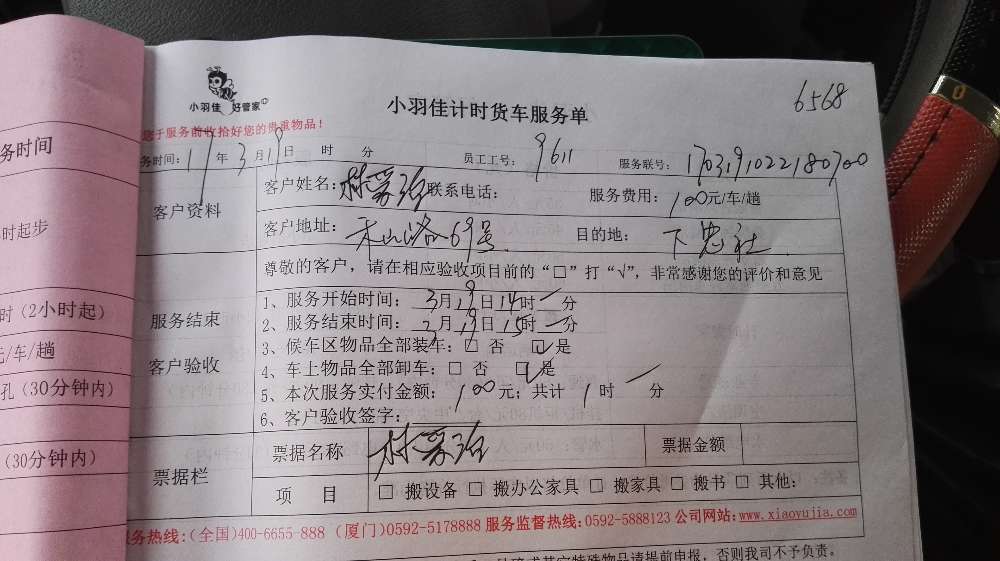 小羽佳 好管家
小羽佳计时货车服务单
6568
您于服务前收拾好您的贵重物品!
务时间
务时间: 17 年 3 月 19 日 时 分 员工工号: 9611 服务联号: 1703191022180700
客户资料
客户姓名: 林 联系电话: 服务费用: 100元/车/趟
时起步
客户地址: 禾山路69号 目的地: 下忠社
尊敬的客户，请在相应验收项目前的“□”打“√”，非常感谢您的评价和意见
服务结束
客户验收
1、服务开始时间: 3月19日14时一分
时(2小时起)
2、服务结束时间: 3月19日15时一分
元/车/趟
3、候车区物品全部装车: □ 否 ☑ 是
孔(30分钟内)
4、车上物品全部卸车: □ 否 ☑ 是
5、本次服务实付金额: 100 元; 共计 1 时 一 分
6、客户验收签字:
(30分钟内)
票据栏
票据名称 林 票据金额
项 目 □ 搬设备 □ 搬办公家具 □ 搬家具 □ 搬书 □ 其他:
务热线:(全国)400-6655-888 (厦门)0592-5178888 服务监督热线:0592-5888123 公司网站:www.xiaoyujia.com
或其它特殊物品请提前申报，否则我司不予负责。